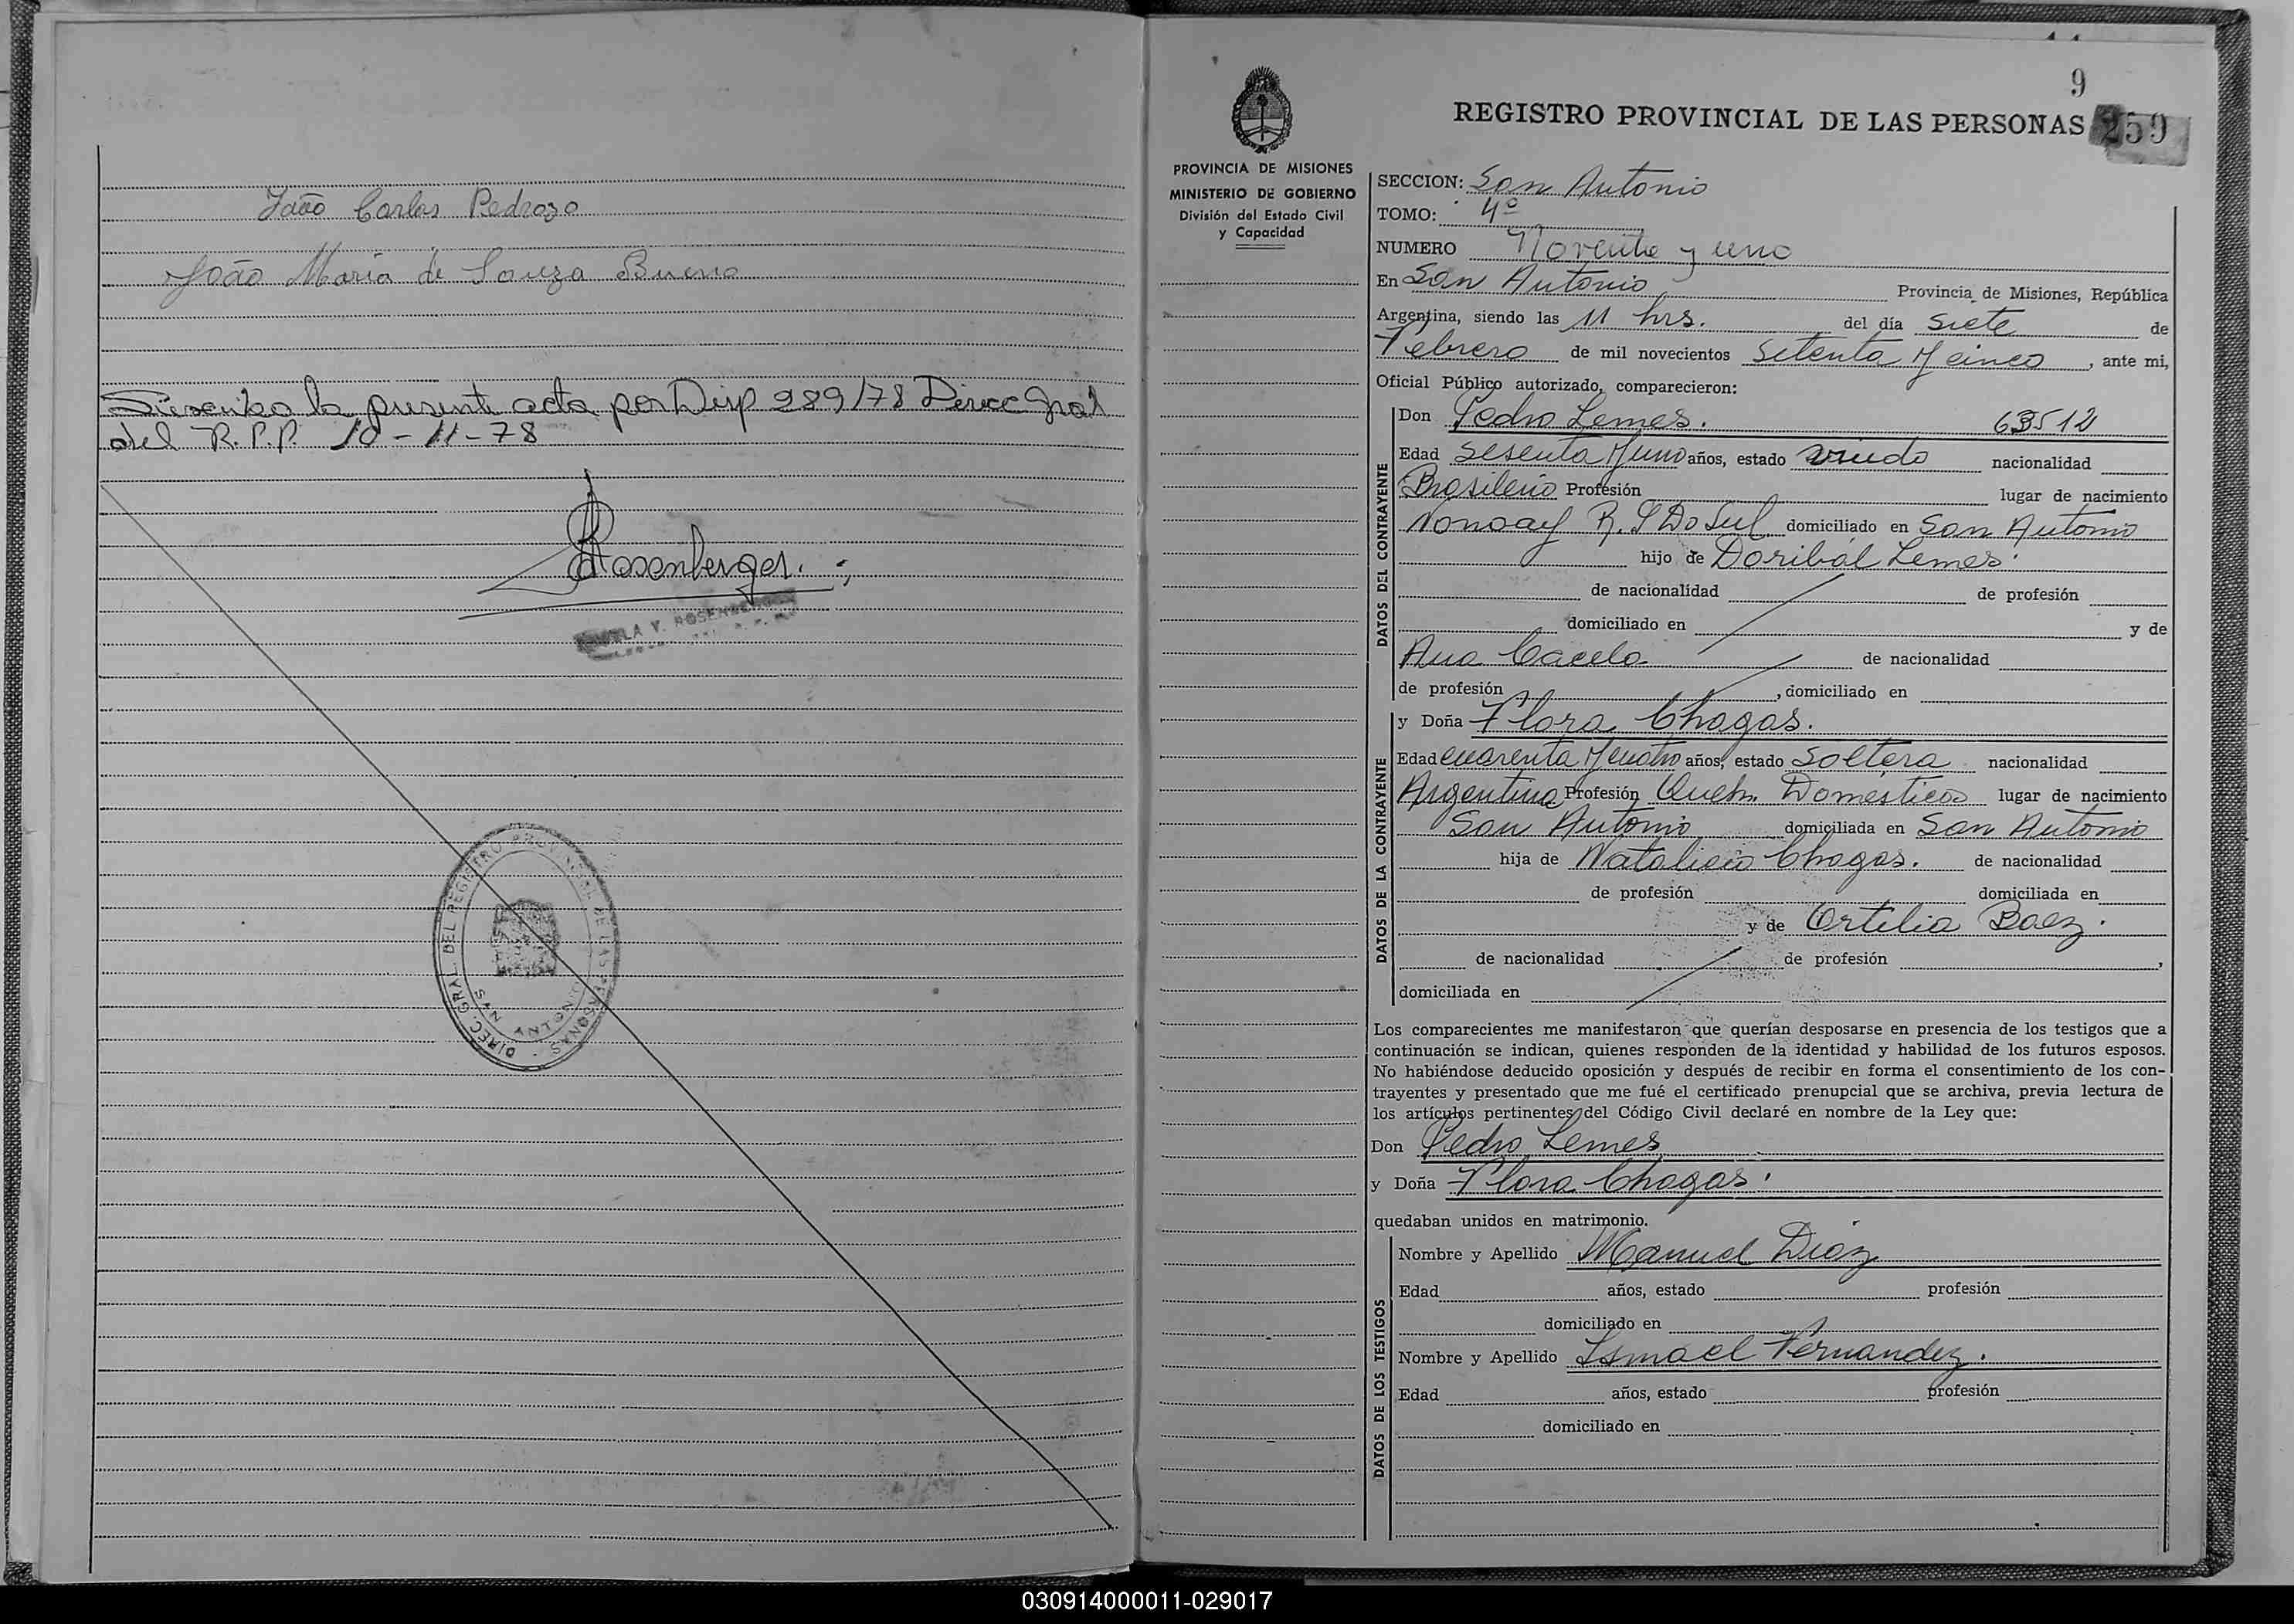 João Carlos Pedrozo
João Maria de Souza Bueno
Suscribo la presente acta por Disp 289/78 Direcc Gral
del R.P.P. 10-11-78
Rosenberger.
Y. ROSENBERGER
DIREC. GRAL. DEL REGISTRO PROVINCIAL DE LAS PERSONAS -
SAN ANTONIO
9
REGISTRO PROVINCIAL DE LAS PERSONAS 259
PROVINCIA DE MISIONES
MINISTERIO DE GOBIERNO
División del Estado Civil
y Capacidad
SECCION: San Antonio
TOMO: 4º
NUMERO Noventa y uno
En San Antonio Provincia de Misiones, República
Argentina, siendo las 11 hrs. del día Siete de
Febrero de mil novecientos Setenta y cinco, ante mi,
Oficial Público autorizado, comparecieron:
DATOS DEL CONTRAYENTE
Don Pedro Lemes. 63512
Edad Sesenta y uno años, estado viudo nacionalidad
Brasileño Profesión lugar de nacimiento
Nonoay R. G Do Sul domiciliado en San Antonio
hijo de Doribál Lemes.
de nacionalidad de profesión
domiciliado en y de
Ana Cacela de nacionalidad
de profesión , domiciliado en
DATOS DE LA CONTRAYENTE
y Doña Flora Chagas.
Edad cuarenta y cuatro años, estado Soltera nacionalidad
Argentina Profesión Queh. Domésticos lugar de nacimiento
San Antonio domiciliada en San Antonio
hija de Natalicio Chagas. de nacionalidad
de profesión domiciliada en
y de Ortilia Baez.
de nacionalidad de profesión ,
domiciliada en
Los comparecientes me manifestaron que querían desposarse en presencia de los testigos que a
continuación se indican, quienes responden de la identidad y habilidad de los futuros esposos.
No habiéndose deducido oposición y después de recibir en forma el consentimiento de los con-
trayentes y presentado que me fué el certificado prenupcial que se archiva, previa lectura de
los artículos pertinentes del Código Civil declaré en nombre de la Ley que:
Don Pedro Lemes
y Doña Flora Chagas.
quedaban unidos en matrimonio.
DATOS DE LOS TESTIGOS
Nombre y Apellido Manuel Diaz
Edad años, estado profesión
domiciliado en
Nombre y Apellido Ismael Fernandez.
Edad años, estado profesión
domiciliado en
030914000011-029017